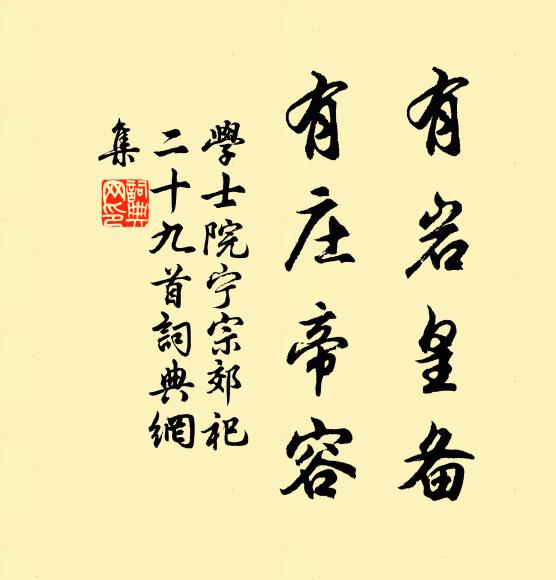 有岩皇备
有庄帝容
學士院宁宗郊祀
二十九首詞典網
集
詞典
网印